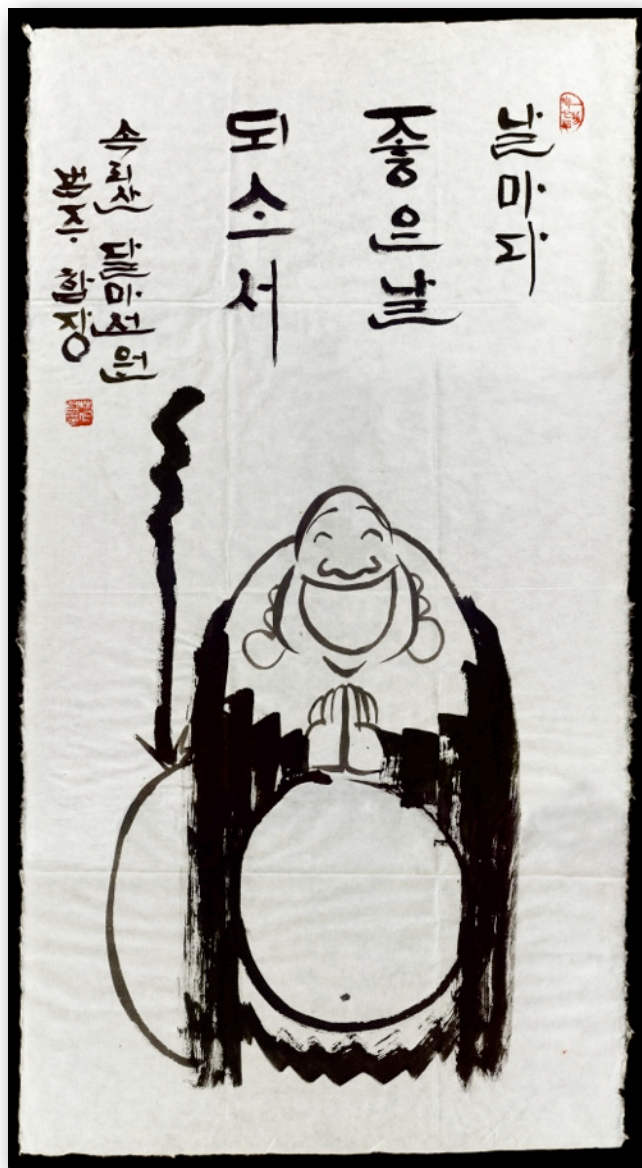 날마다
좋은날
되소서
속리산 달마서원
범주 합장